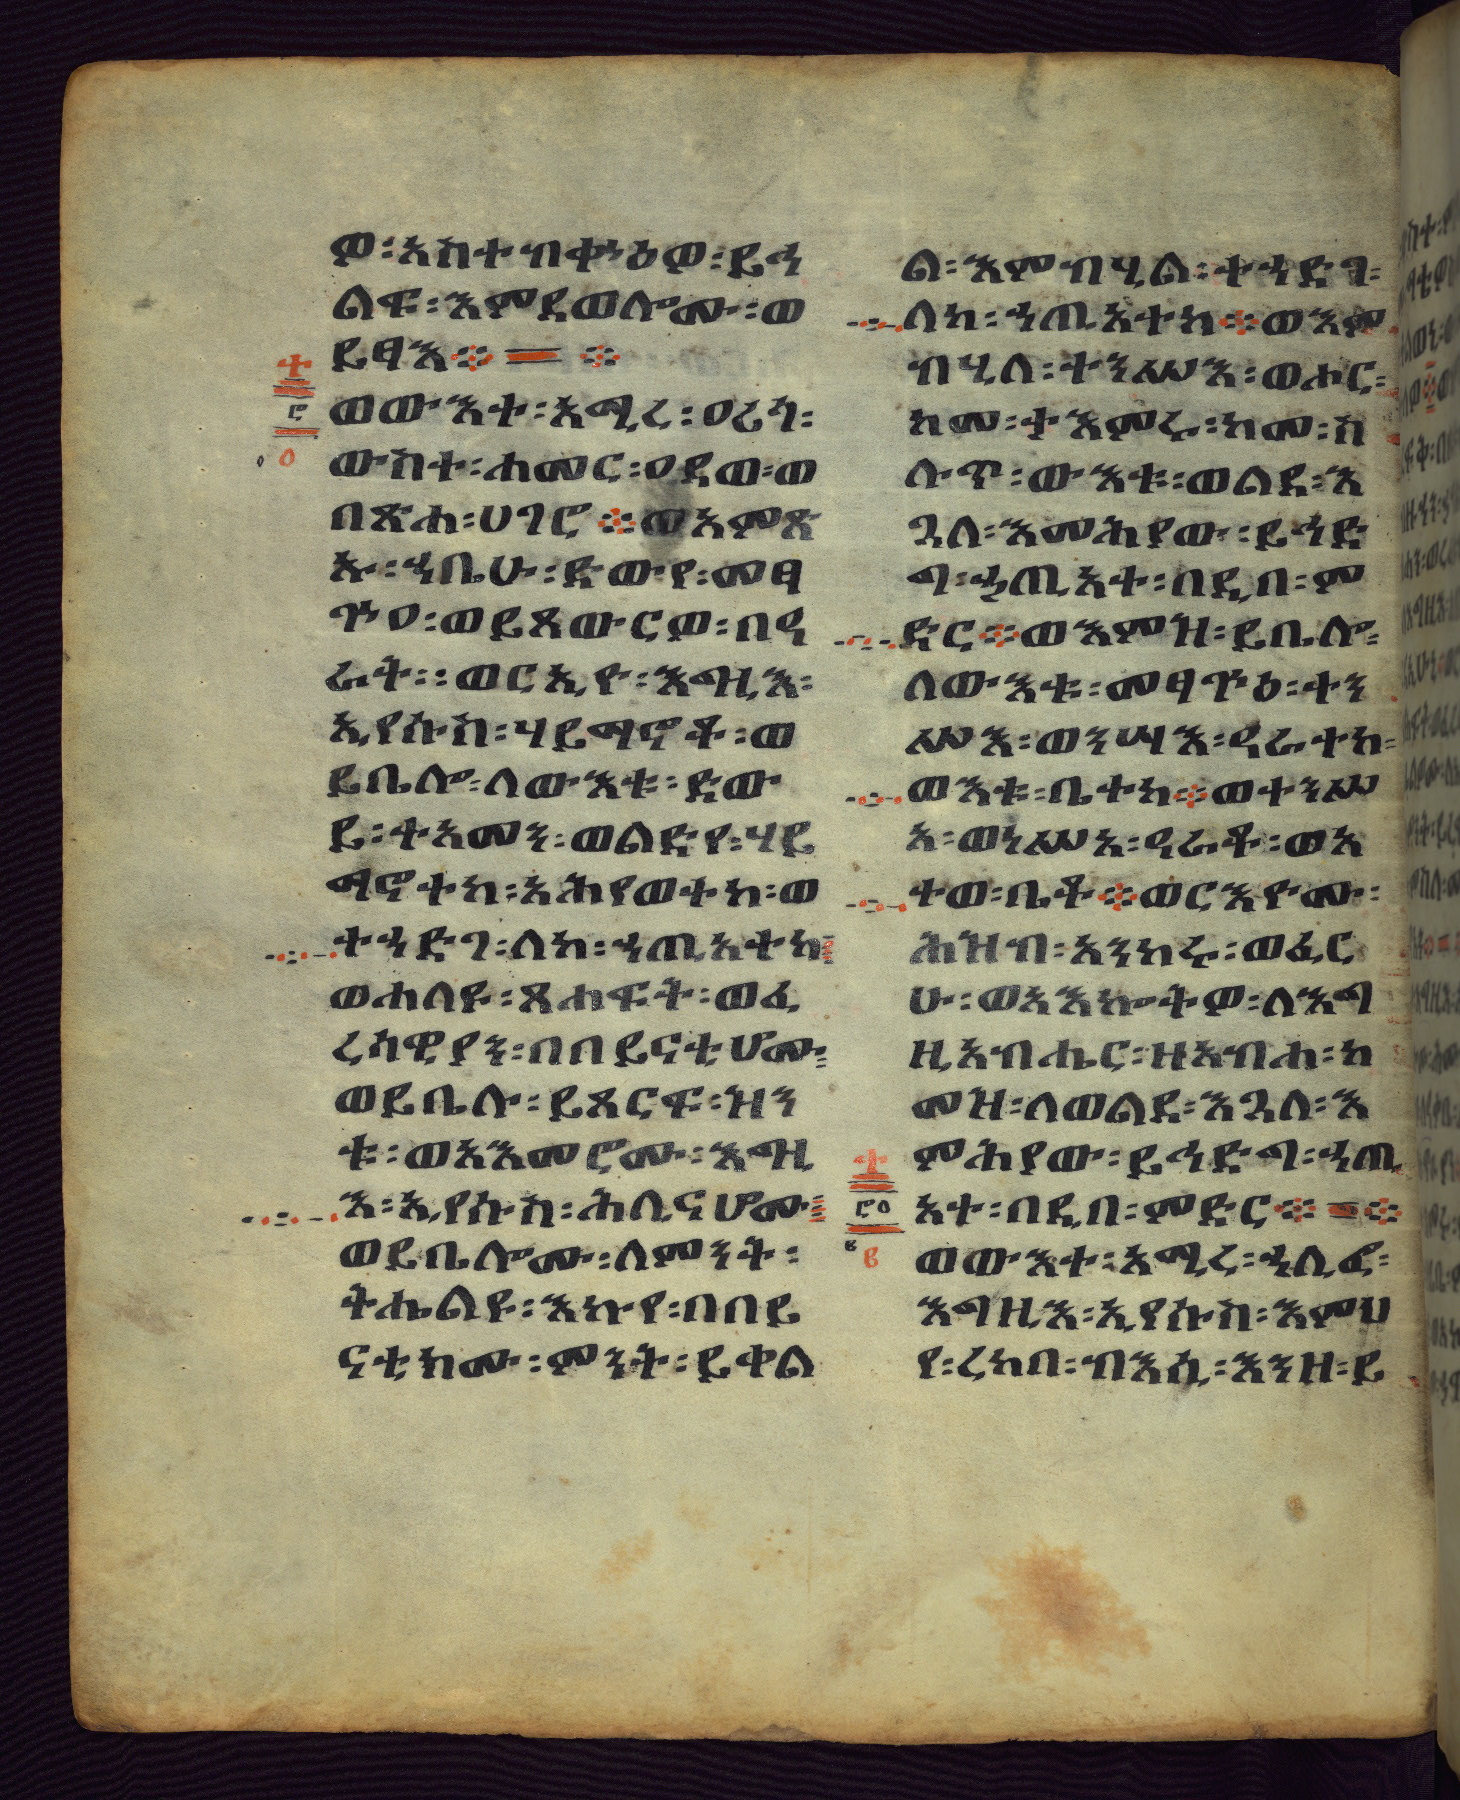 ዎ፡አስተብቍዕዎ፡ይኅ
ልፍ፡እምደወሎሙ፡ወ
ይፃእ
ወውእተ፡አሚረ፡ዐሪጎ፡
ውስተ፡ሐመር፡ዐደወ፡ወ
በጽሐ፡ሀገሮ ወአምጽ
ኡ፡ኀቤሁ፡ድውየ፡መፃ
ጕዐ፡ወይጸውርዎ፡በዓ
ራት፡፡ወርኢዮ፡እግዚእ፡
ኢየሱስ፡ሃይማኖቶ፡ወ
ይቤሎ፡ለውእቱ፡ድው
ይ፡ተአመን፡ወልድየ፡ሃይ
ማኖተከ፡አሕየወተከ፡ወ
ተኀድገ፡ለከ፡ኀጢአትከ
ወሐለዩ፡ጸሐፍት፡ወፈ
ሪሳዊያን፡በበይናቲሆሙ፡
ወይቤሉ፡ይጸርፍ፡ዝን
ቱ፡ወአእመሮሙ፡እግዚ
እ፡ኢየሱስ፡ሕሊናሆሙ
ወይቤሎሙ፡ለምንት፡
ትሔልዩ፡እኩየ፡በበይ
ናቲክሙ፡ምንት፡ይቀል
ል፡እምብሂል፡ተኀድገ፡
ለከ፡ኀጢአተከ ወእም
ብሂለ፡ተንሥእ፡ወሑር፡
ከመ፡ታእምሩ፡ከመ፡ስ
ሉጥ፡ውእቱ፡ወልደ፡እ
ጓለ፡እመሕያው፡ይኅድ
ግ፡ኃጢአተ፡በዲበ፡ም
ድር ወእምዝ፡ይቤሎ፡
ለውእቱ፡መፃጕዕ፡ተን
ሥእ፡ወንሣእ፡ዓራተከ፡
ወእቱ፡ቤተከ ወተንሥ
አ፡ወነሥአ፡ዓራቶ፡ወአ
ተወ፡ቤቶ ወርእዮሙ፡
ሕዝብ፡አንከሩ፡ወፈር
ሁ፡ወአእኰትዎ፡ለእግ
ዚአብሔር፡ዘአብሐ፡ከ
መዝ፡ለወልደ፡እጓለ፡እ
ምሕያው፡ይኅድግ፡ኀጢ
አተ፡በዲበ፡ምድር
ወውእተ፡አሚረ፡ኀሊፎ፡
እግዚእ፡ኢየሱስ፡እምህ
የ፡ረከበ፡ብእሴ፡እንዘ፡ይ